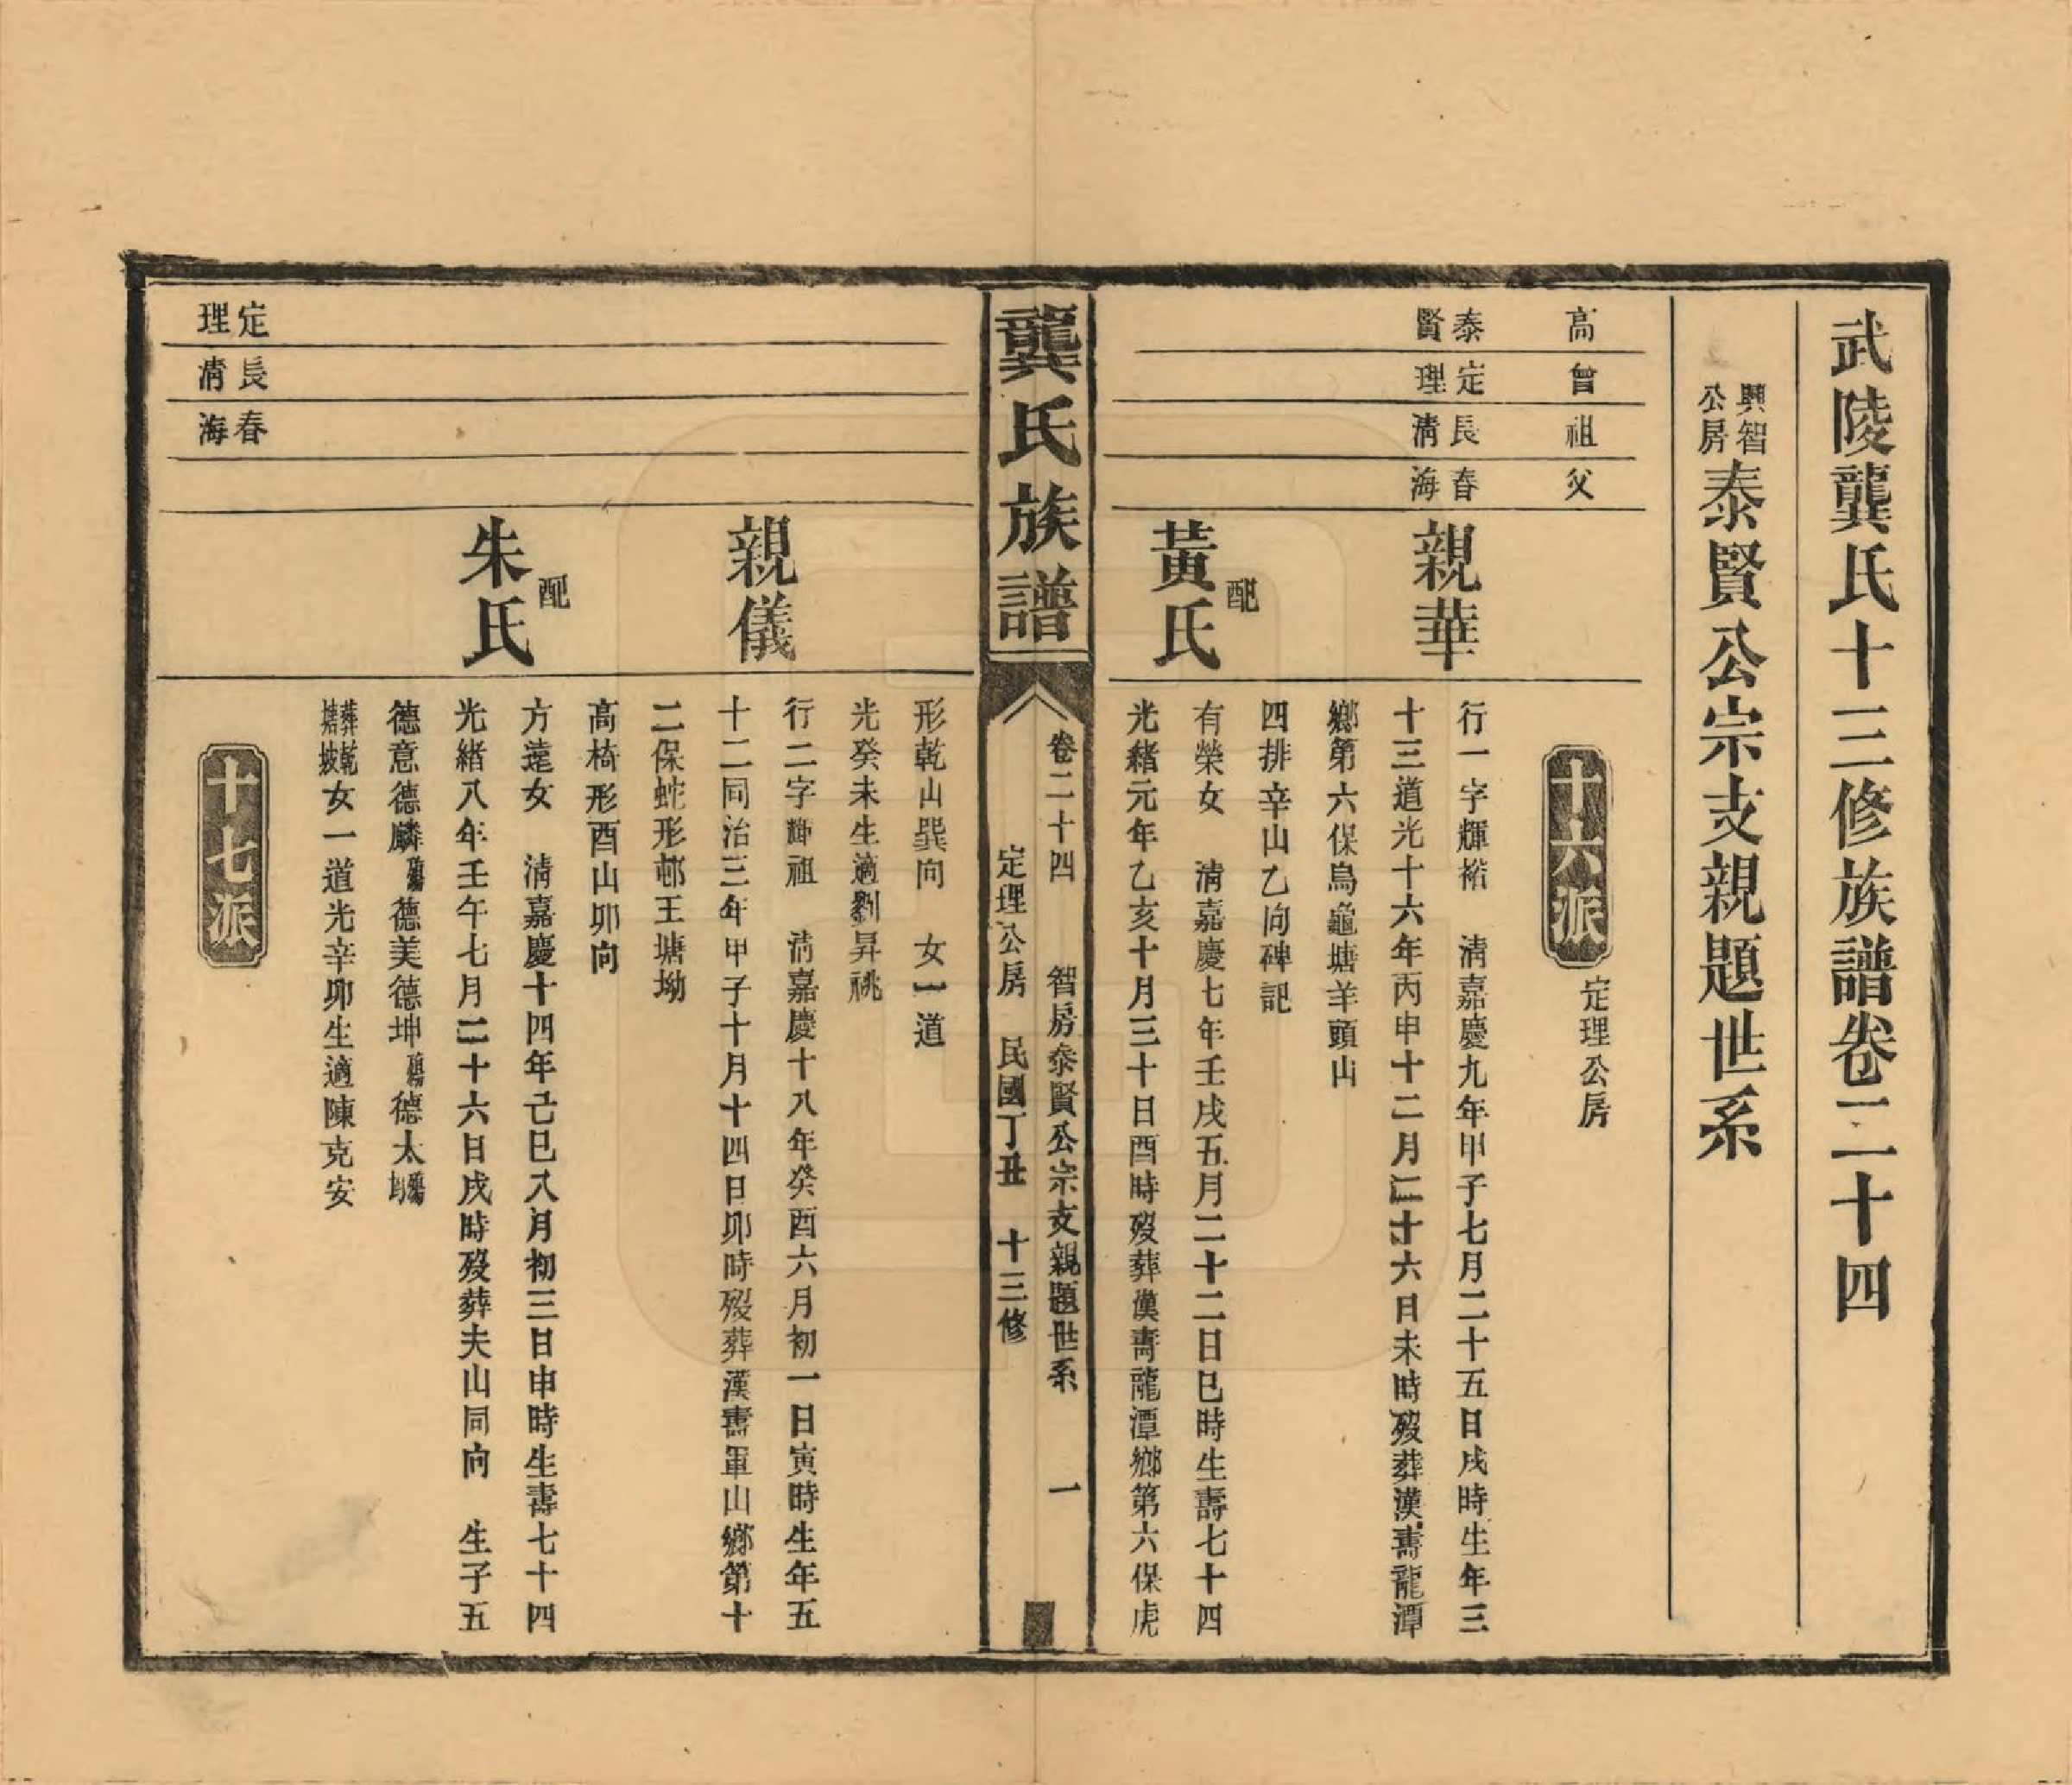 武陵龔氏十三修族譜卷二十四
興智公房泰賢公宗支親題世系
高
曾
祖
父
十六派
定理公房
泰賢
定理
長淸
春海
親華
行一字輝裕　淸嘉慶九年甲子七月二十五日戌時生年三
十三道光十六年丙申十二月二十六日未時歿葬漢壽龍潭
鄉第六保烏龜塘羊頭山
四排辛山乙向碑記
配
黃氏
有榮女　淸嘉慶七年壬戌五月二十二日巳時生壽七十四
光緒元年乙亥十月三十日酉時歿葬漢壽龍潭鄉第六保虎
龔氏族譜
卷二十四　智房泰賢公宗支親題世系　一
定理公房　民國丁丑　十三修
形乾山巽向　女一道
光癸未生適劉昇祧
親儀
行二字輝祖　淸嘉慶十八年癸酉六月初一日寅時生年五
十二同治三年甲子十月十四日卯時歿葬漢壽軍山鄉第十
二保蛇形邨王塘坳
高椅形酉山卯向
配
朱氏
方遠女　淸嘉慶十四年己巳八月初三日申時生壽七十四
光緒八年壬午七月二十六日戌時歿葬夫山同向　生子五
德意德麟德美德坤德太
葬乾塘坡女一道光辛卯生適陳克安
定理
長淸
春海
十七派